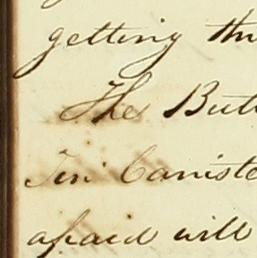 getting th
The But
Tin Caniste
afraid will